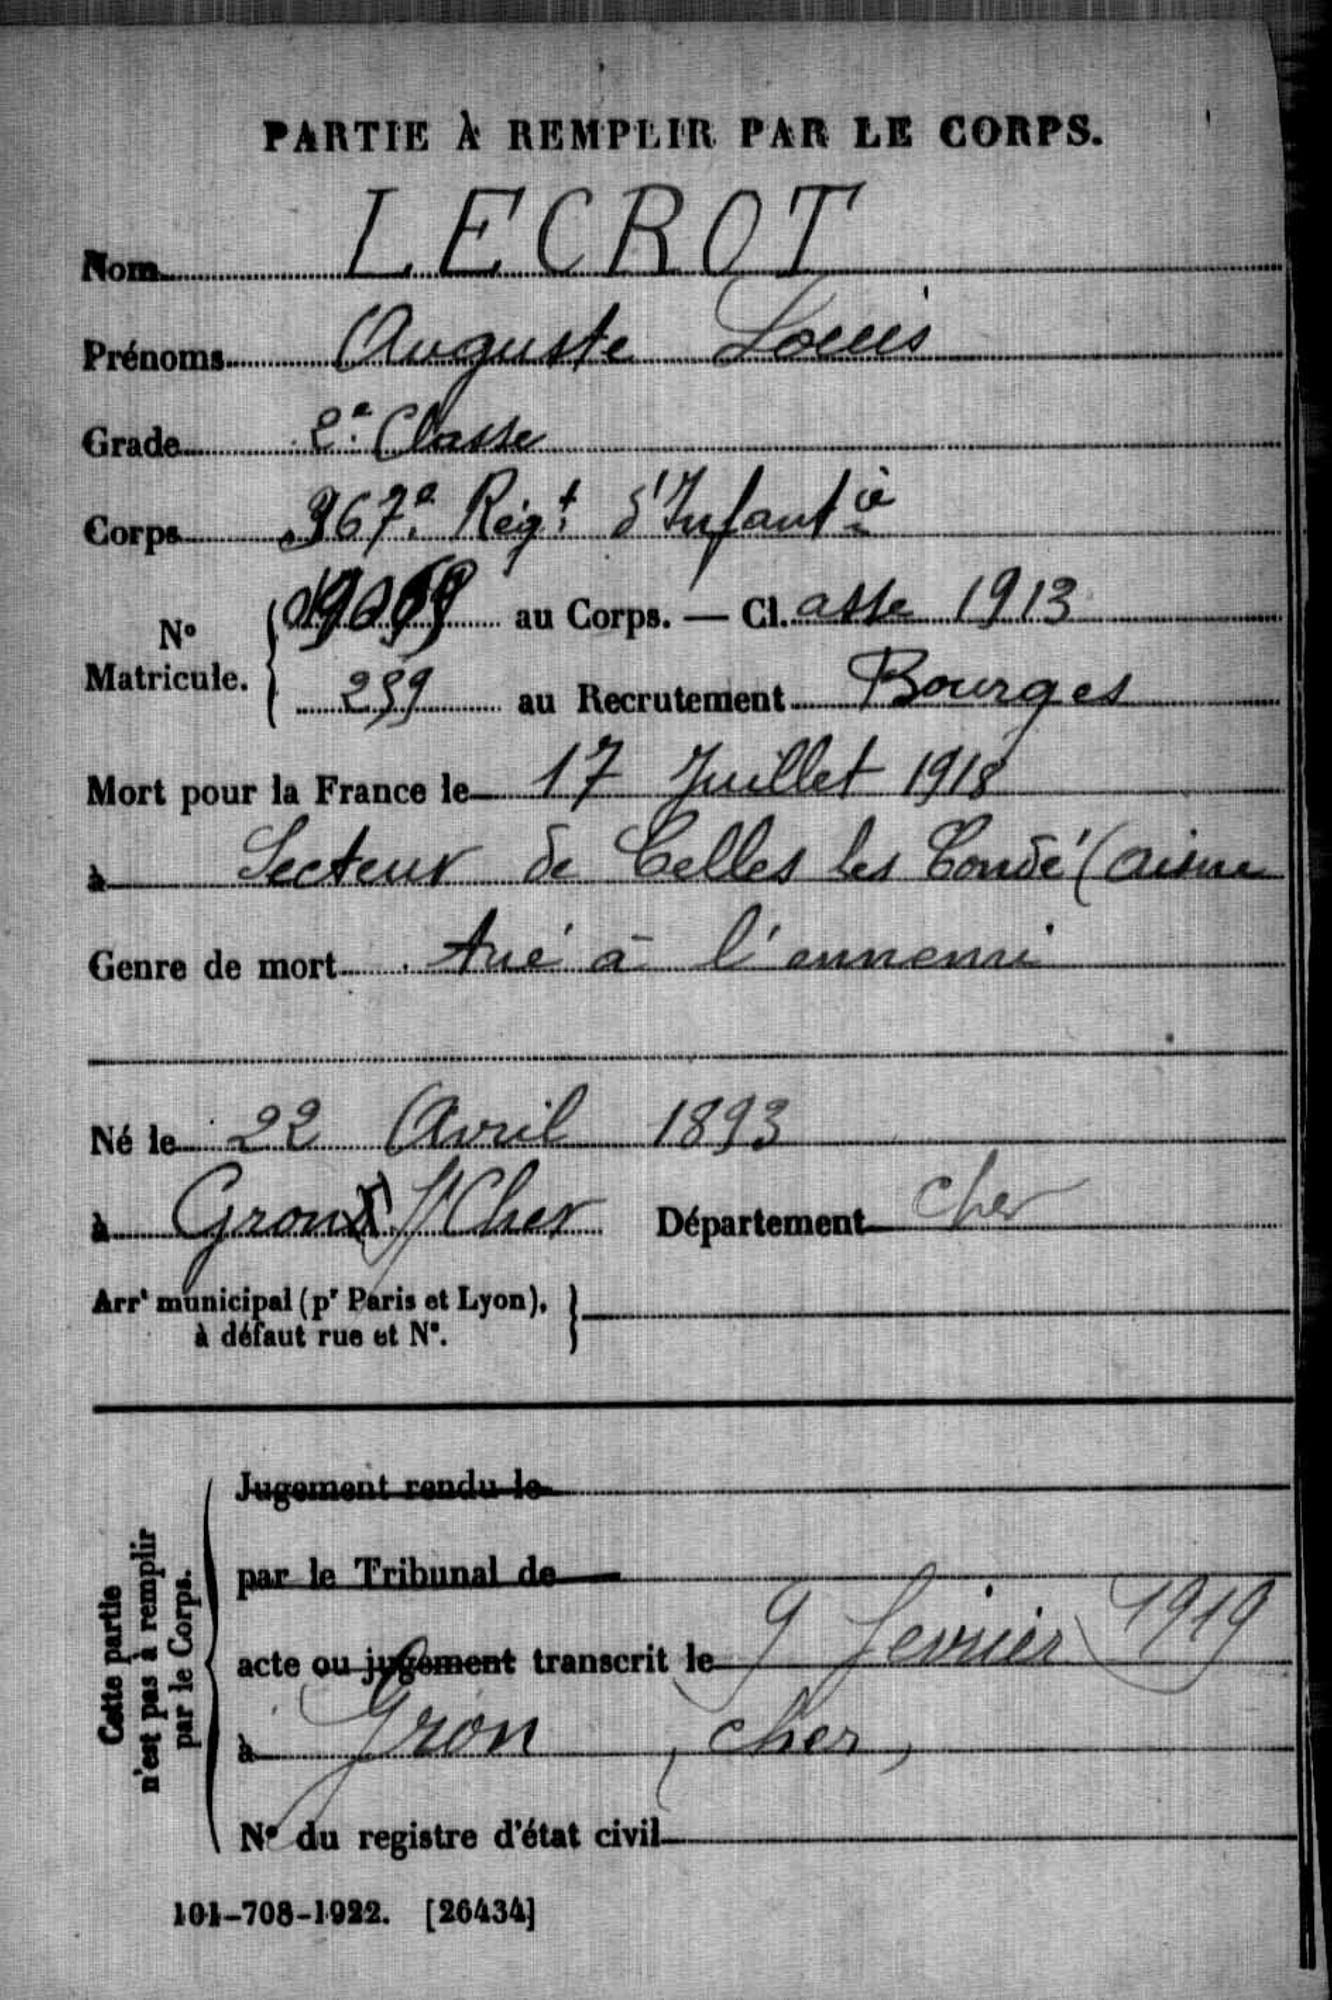 PARTIE À REMPLIR PAR LE CORPS.
Nom LECROT
Prénoms Auguste Louis
Grade 2e Classe
Corps 367e Régt d'Infantie
No Matricule. au Corps. — Cl.asse 1913
259 au Recrutement Bourges
Mort pour la France le 17 Juillet 1918
à Secteur de Celles les Condé (Aisne
Genre de mort tué à l'ennemi
Né le 22 Avril 1893
à Gron s/ Cher Département Cher
Arrt municipal (pr Paris et Lyon),
à défaut rue et No.
Cette partie
n'est pas à remplir
par le Corps.
Jugement rendu le
par le Tribunal de
acte ou jugement transcrit le 9 fevrier 1919
à Gron (Cher)
No du registre d'état civil
101-708-1922. [26434]